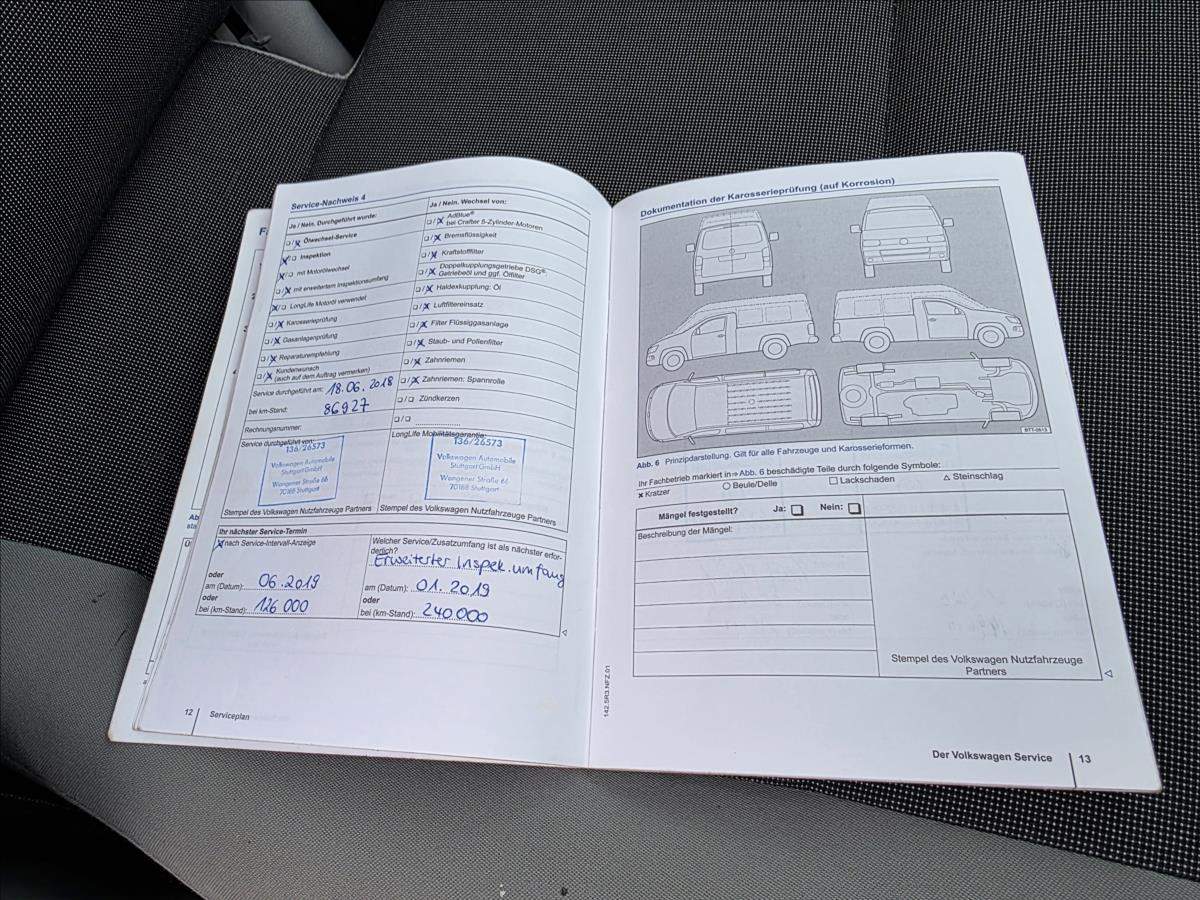 Service-Nachweis 4
Ja / Nein. Durchgeführt wurde:
❏/X Ölwechsel-Service
X/❏ Inspektion
X/❏ mit Motorölwechsel
❏/X mit erweitertem Inspektionsumfang
X/❏ LongLife Motoröl verwendet
❏/X Karosserieprüfung
❏/X Gasanlagenprüfung
❏/X Reparaturempfehlung
❏/X Kundenwunsch
(auch auf dem Auftrag vermerken)
Service durchgeführt am: 18.06.2018
bei km-Stand: 86927
Rechnungsnummer:
Service durchgeführt von:
136/26573
Volkswagen Automobile
Stuttgart GmbH
Wangener Straße 66
70188 Stuttgart
Stempel des Volkswagen Nutzfahrzeuge Partners
Ja / Nein. Wechsel von:
❏/X AdBlue®
bei Crafter 5-Zylinder-Motoren
❏/X Bremsflüssigkeit
❏/X Kraftstofffilter
❏/X Doppelkupplungsgetriebe DSG®:
Getriebeöl und ggf. Ölfilter
❏/X Haldexkupplung: Öl
❏/X Luftfiltereinsatz
❏/X Filter Flüssiggasanlage
❏/X Staub- und Pollenfilter
❏/X Zahnriemen
❏/X Zahnriemen: Spannrolle
❏/❏ Zündkerzen
❏/❏ ....................
LongLife Mobilitätsgarantie:
136/26573
Volkswagen Automobile
Stuttgart GmbH
Wangener Straße 66
70188 Stuttgart
Stempel des Volkswagen Nutzfahrzeuge Partners
Ihr nächster Service-Termin
X nach Service-Intervall-Anzeige
oder
am (Datum): 06.2019
oder
bei (km-Stand): 126 000
Welcher Service/Zusatzumfang ist als nächster erfor-
derlich?
Erweiterter Inspek.umfang
am (Datum): 01.2019
oder
bei (km-Stand): 240.000
12 Serviceplan
Dokumentation der Karosserieprüfung (auf Korrosion)
BTT-0513
Abb. 6 Prinzipdarstellung. Gilt für alle Fahrzeuge und Karosserieformen.
Ihr Fachbetrieb markiert in ⇒ Abb. 6 beschädigte Teile durch folgende Symbole:
✗ Kratzer ○ Beule/Delle □ Lackschaden △ Steinschlag
Mängel festgestellt? Ja: ❏ Nein: ❏
Beschreibung der Mängel:
Stempel des Volkswagen Nutzfahrzeuge
Partners
142.5R3.NFZ.01
Der Volkswagen Service 13